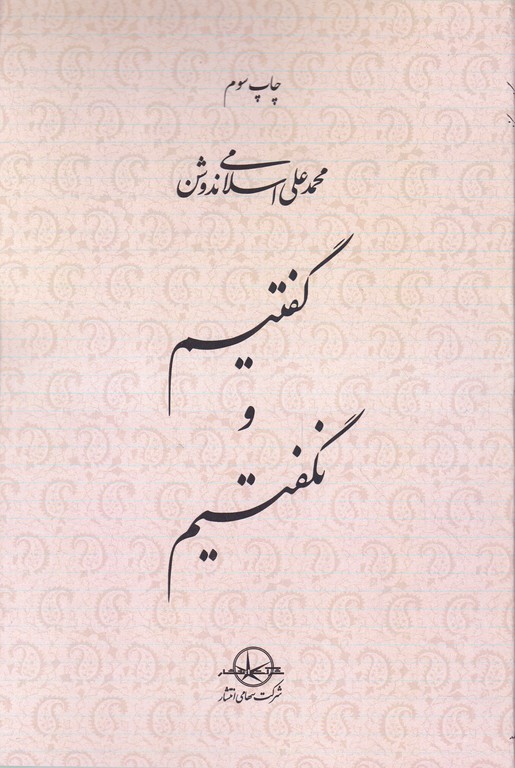 چاپ سوم
محمدعلی اسلامی ندوشن
گفتیم
و
نگفتیم
شرکت سهامی انتشار